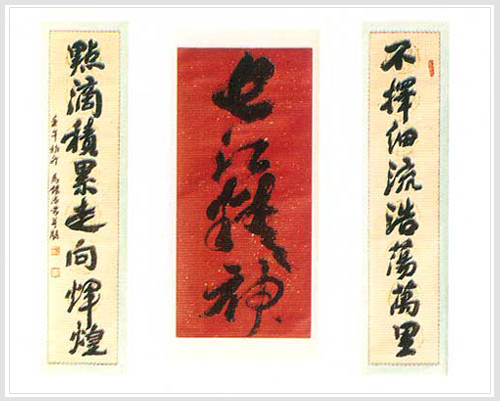 不擇細流浩蕩萬里
長江精神
點滴積累走向輝煌